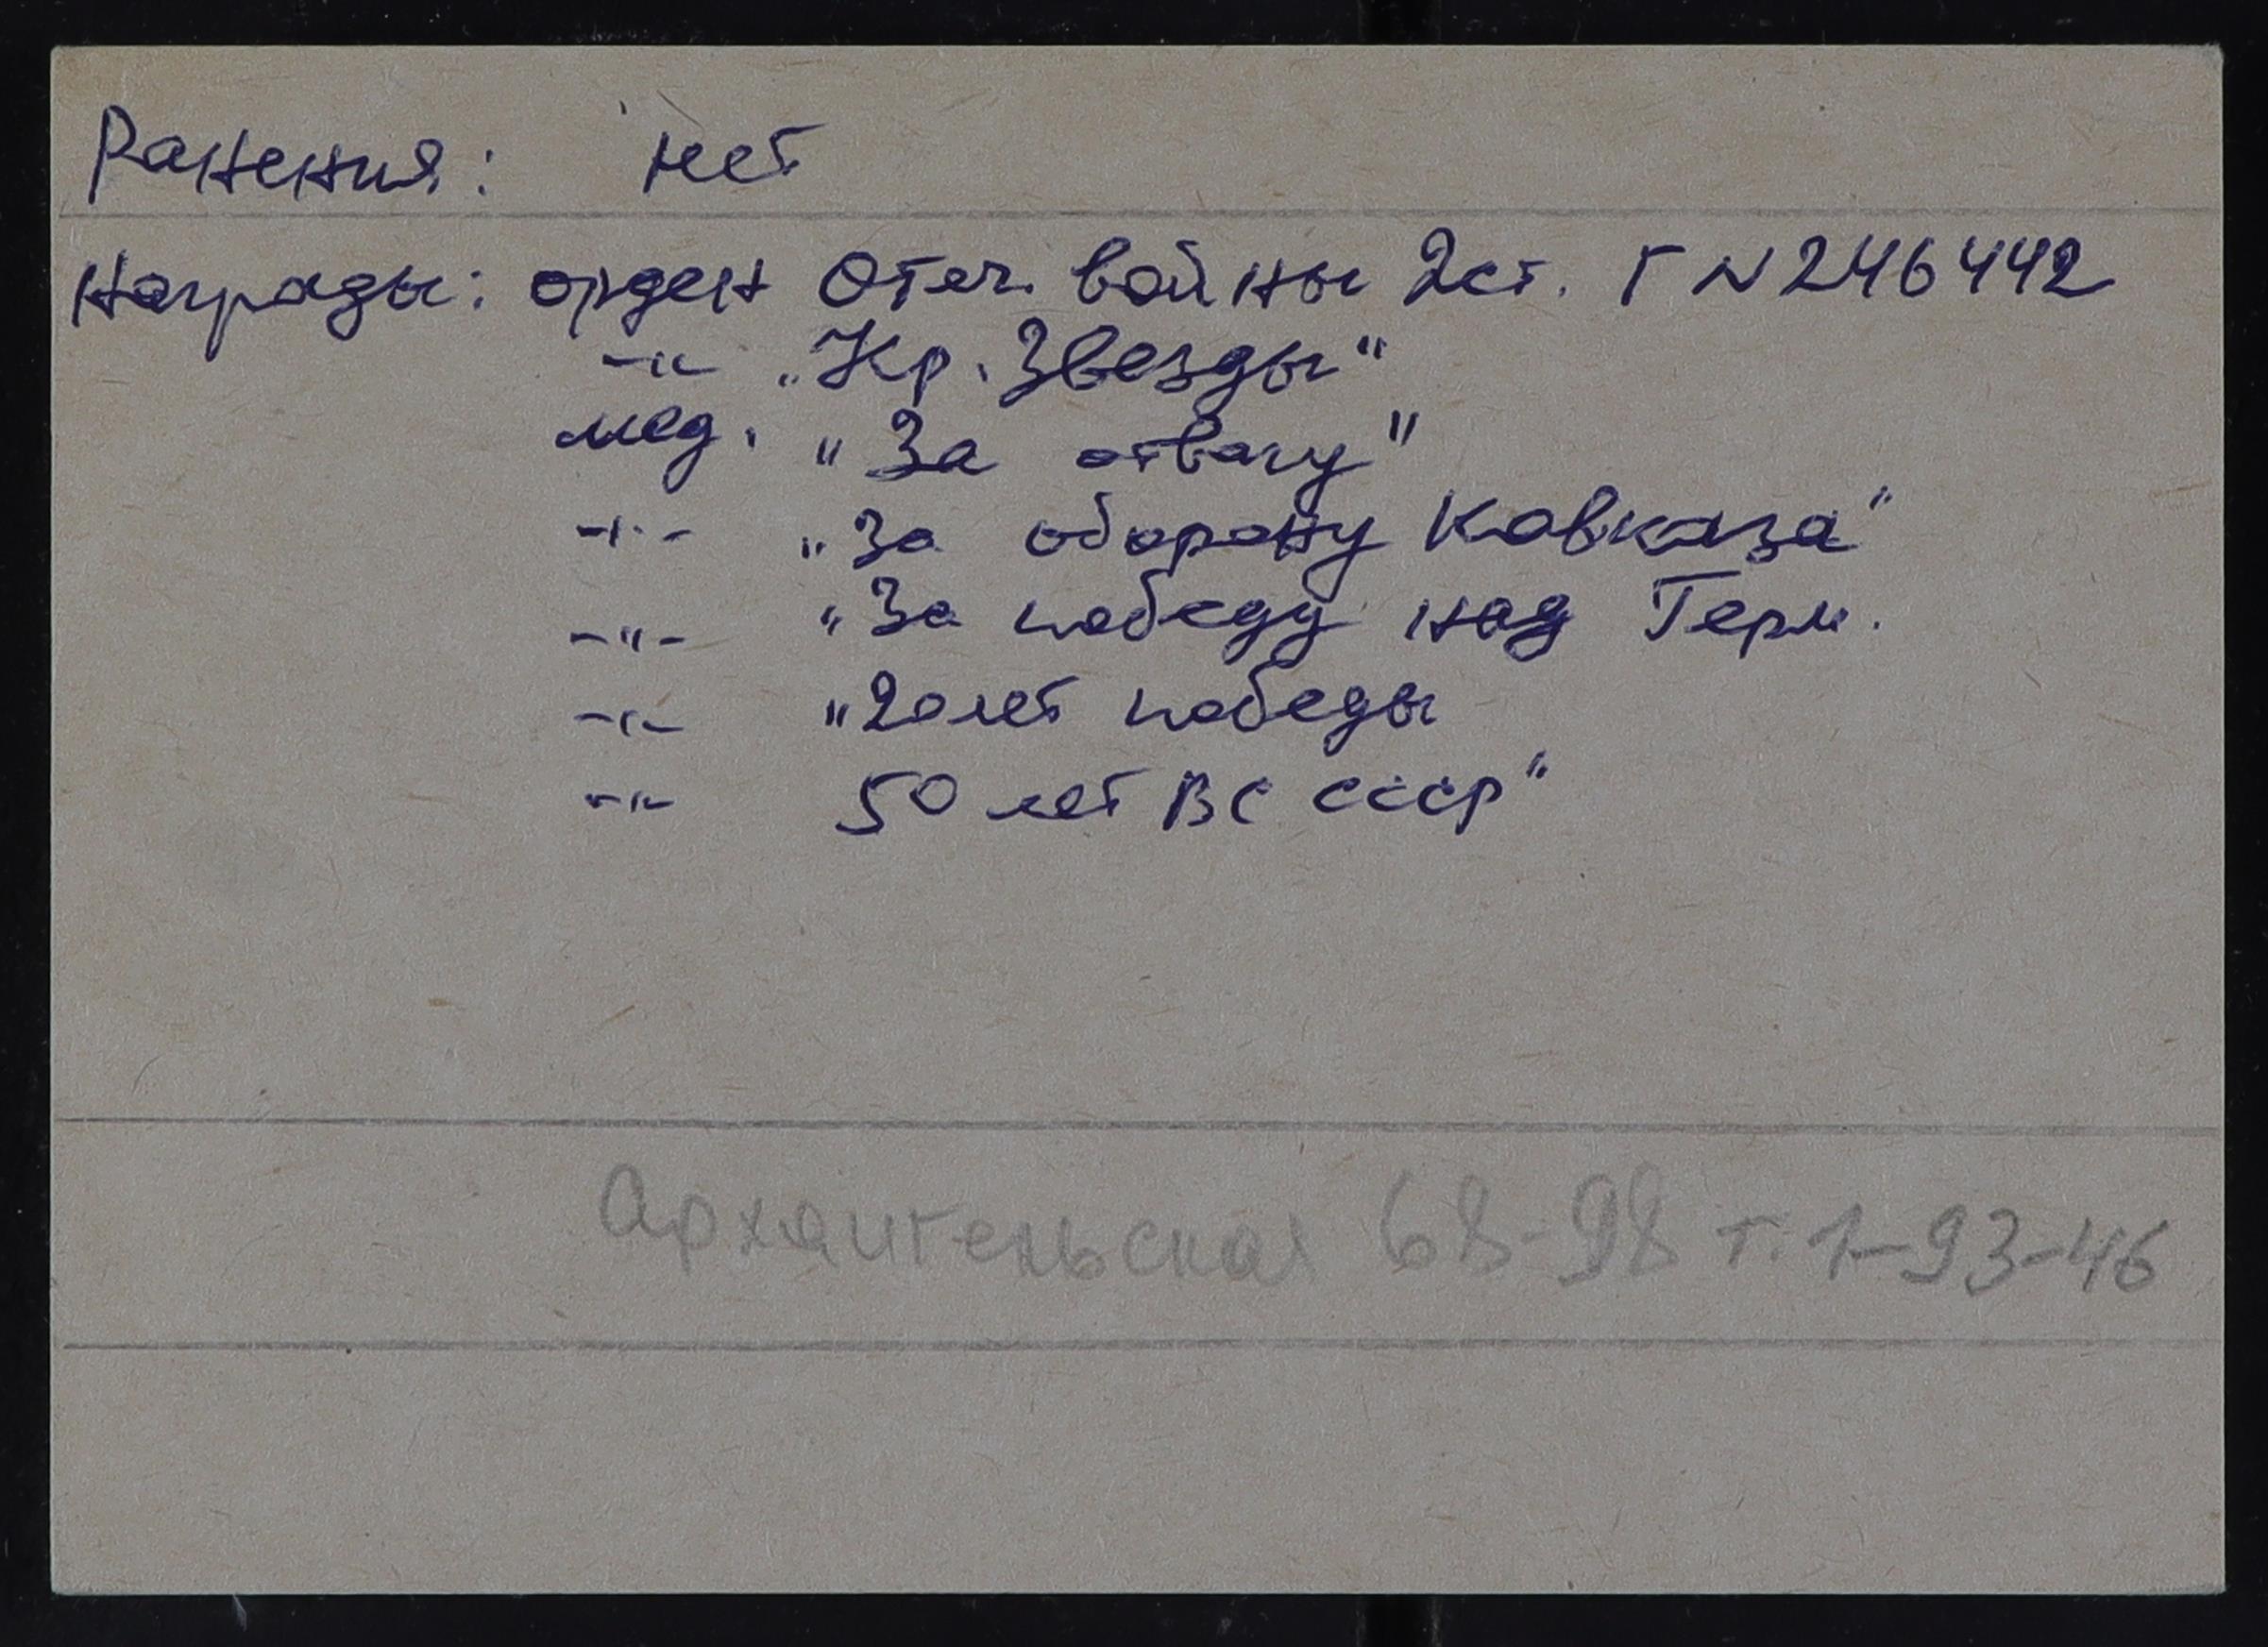 Ранения: нет
Награды: орден Отеч. войны 2ст. Г N 246442
-"- „Кр. Звезды"
мед. "За отвагу"
-"- „За оборону Кавказа"
-"- "За победу над Герм.
-"- "20 лет победы
-"- 50 лет ВС СССР"
Архангельская 68-98 т. 1-93-46